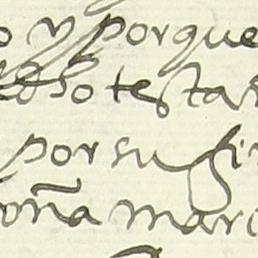 o y porque
dho testa
por su fir
oña mari